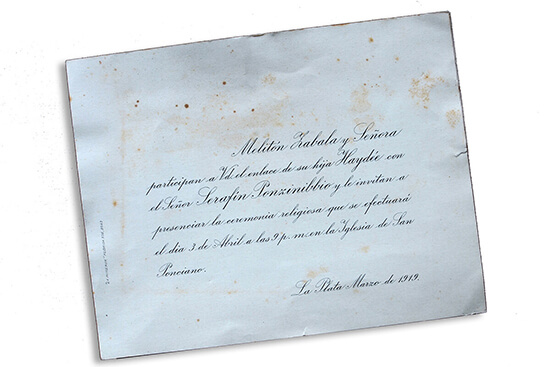 Melitón Zabala y Señora
participan a Vd. el enlace de su hija Haydée con
el Señor Serafín Ponzinibbio y le invitan a
presenciar la ceremonia religiosa que se efectuará
el día 3 de Abril a las 9 p. m. en la Iglesia de San
Ponciano.
La Plata Marzo de 1919.